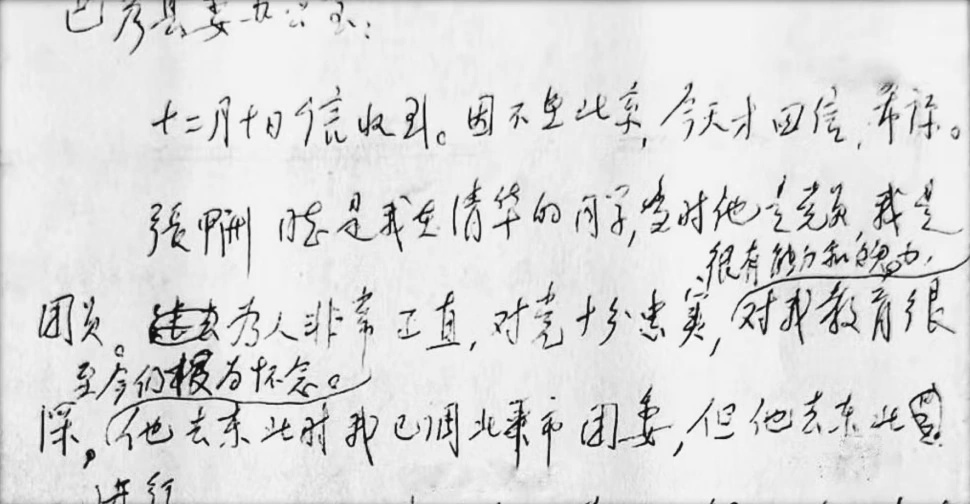 巴彦县委办公室：
十二月十日信收到。因不在北京，今天才回信，希谅。
張甲洲同志是我在清华的同学，当时他是党员，我是
很有能力和魄力，
团员。为人非常正直，对党十分忠实，对我教育很
至今仍极为怀念。
深。他去东北时我已调北平市团委，但他去东北
进行